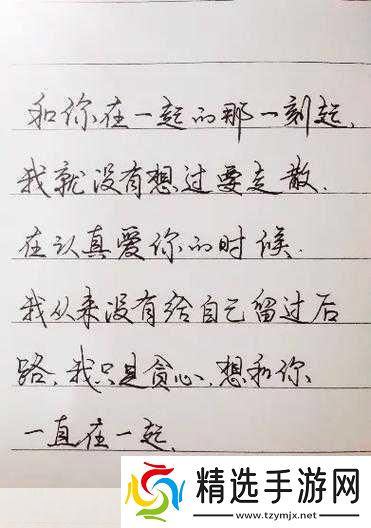 和你在一起的那一刻起,
我就没有想过要走散.
在认真爱你的时候.
我从来没有给自己留过后
路,我只是贪心,想和你、
一直在一起.
精选手游网
www.tzymjx.com